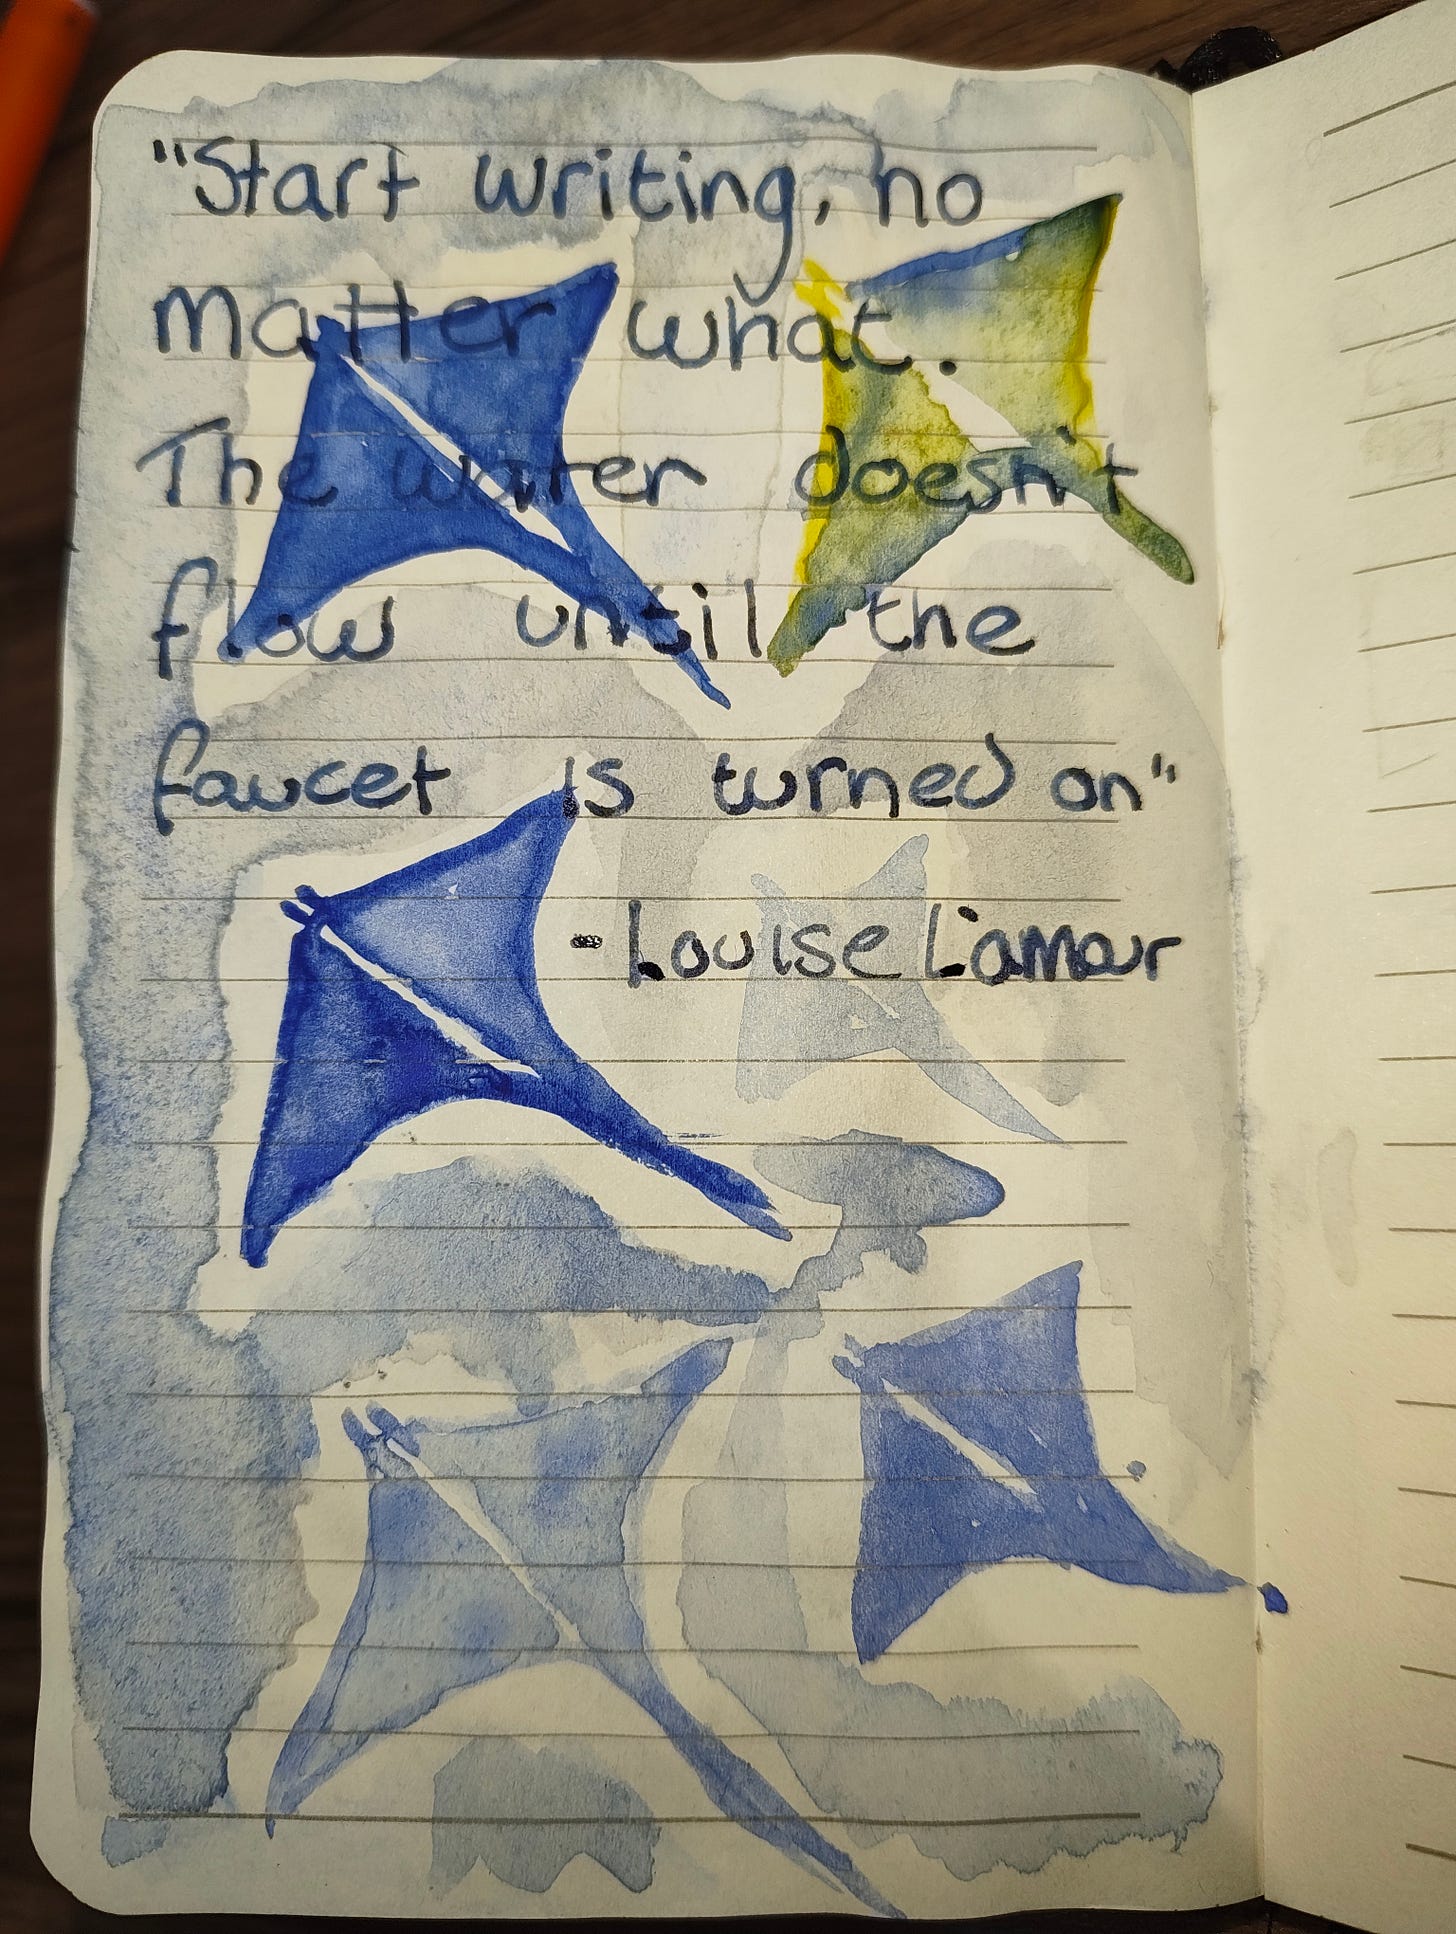 "Start writing, no
matter what.
The water doesn't
flow until the
faucet is turned on"
- Louise L'amour